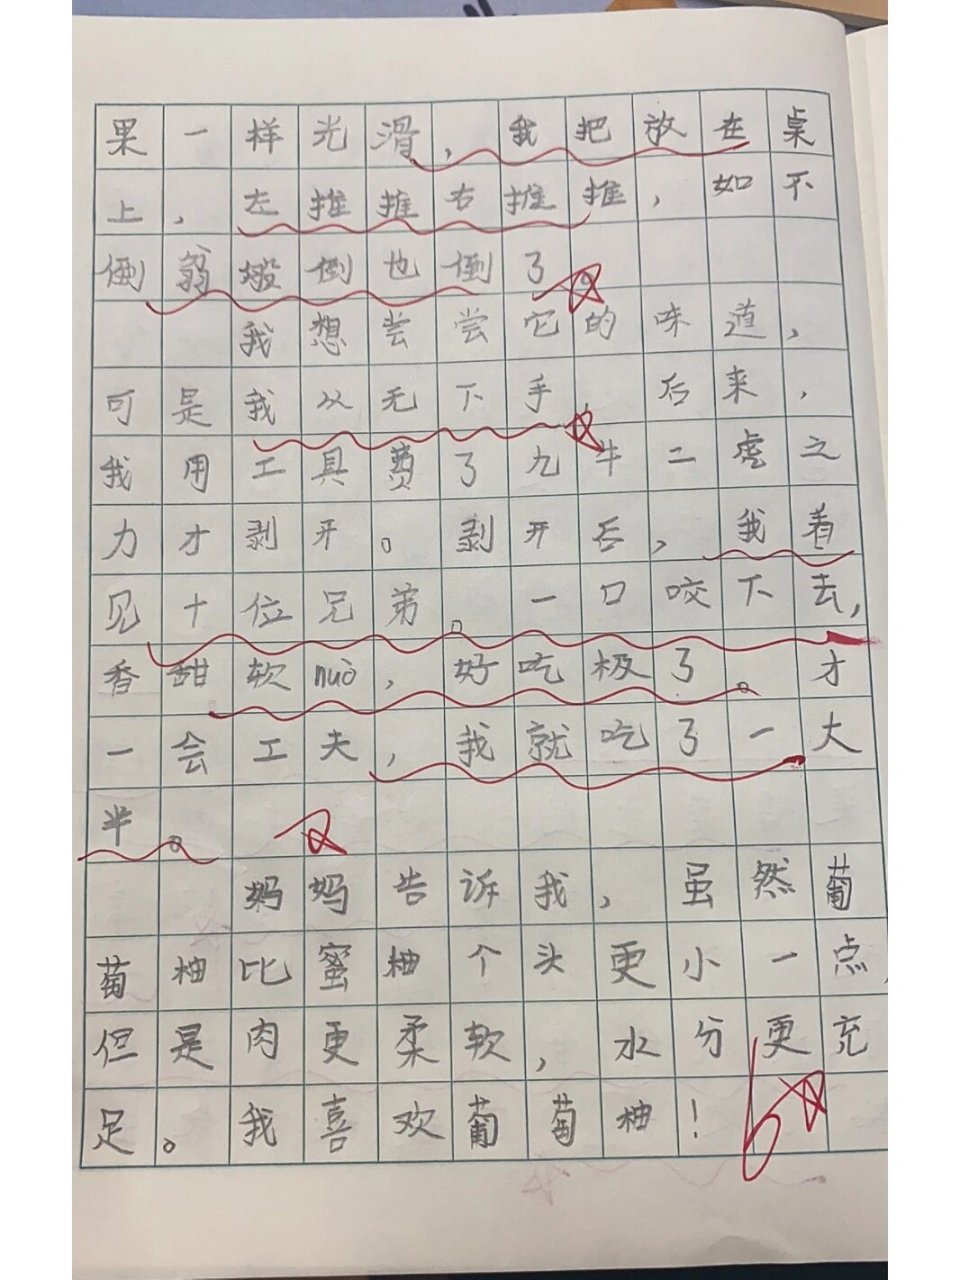 果一样光滑，我把放在桌
上，左推推右推推，如不
倒翁缎倒也倒了
我想尝尝它的味道，
可是我从无下手 后来，
我用工具费了九牛二虎之
力才剥开。剥开后，我着
见十位兄弟。一口咬下去，
香甜软nuò，好吃极了。才
一会工夫，我就吃了一大
半。
妈妈告诉我，虽然葡
萄柚比蜜柚个头更小一点，
但是肉更柔软，水分更充
足。我喜欢葡萄柚！
6